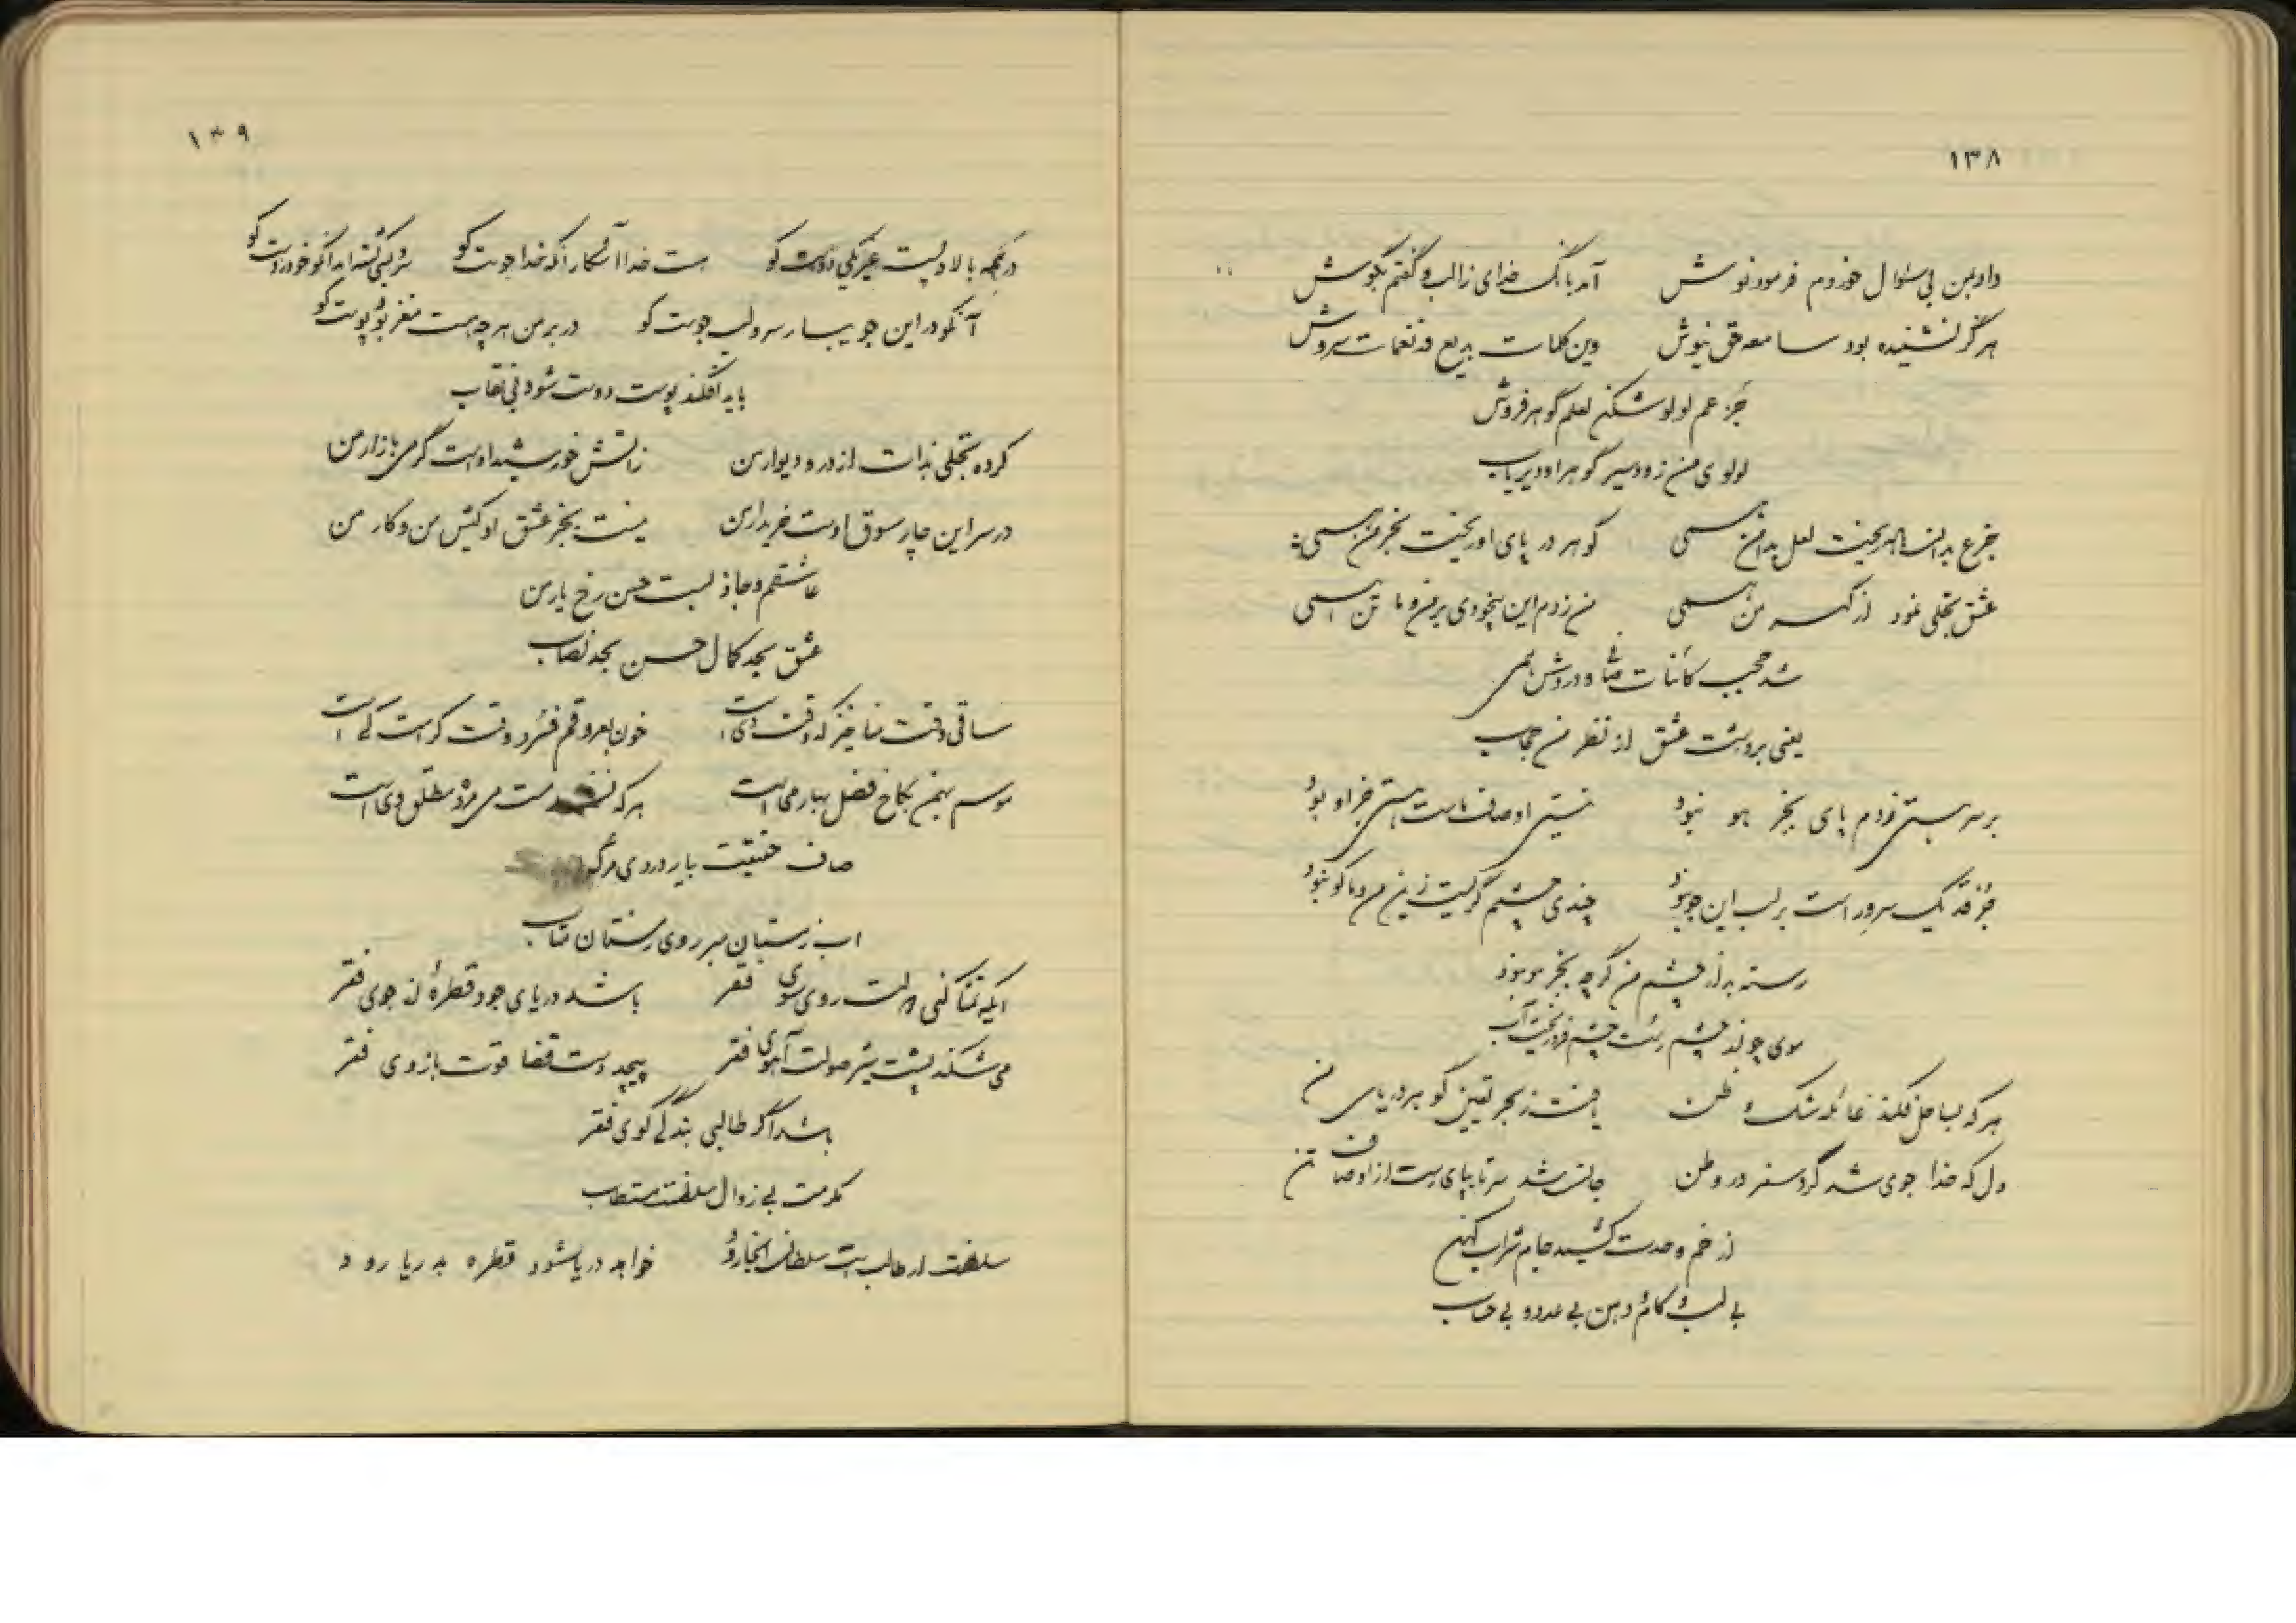 ۱۳۸
داد بمن بی سئوال خوردم فرمود نوش آمد بانگ خدای زالب و گفتم بگوش
هرگز نشنیده بود سامعه حق نیوش وین کلمات بدیع نغمات سروش
جزعم لولو شکن لعلم گوهر فروش
لولوی من زود سیر گوهر او دیریاب
جزع بدانسان ریخت لعل بدامن همی گوهر در پای او ریخت بخرمن همی
عشق تجلی نمود از من همی من زدم این بیخودی بر من و ما تن همی
شد حجب کائنات همی
یعنی برداشت عشق از نظر من حجاب
بر سر هستی زدم پای بجز هو نبود نیستی اوصاف ماست هستی جز او نبود
جز قد یک سرور است بر لب این جو نبود چندی چشمم گریست زین من و ما کو نبود
رسته بد از چشم من گرچه بجز مو نبود
موی چو از چشم رست چشم فرو ریخت آب
هر که بساحل فکند غائله شک و ظن یافت ز بحر یقین گوهر دریای من
دل که خدا جوی شد کرد سفر در وطن جانش شد سر تا بپای رست از اوصاف تن
از خم وحدت کشید جام شراب کهن
بی لب و کام و دهن بی عدد و بی حساب
۱۳۹
در همه بالا و پست غیر یکی دوست کو هست خدا آشکار آنکه خدا جوست کو
آنکو در این جویبار سرو لب جوست کو در بر من هر چه هست مغز بود پوست کو
باید افکند پوست دوست شود بی نقاب
کرده تجلی بذات از در و دیوار من زآتش خورشید اوست گرمی بازار من
در سر این چار سوق اوست خریدار من نیست بجز عشق او کیش من و کار من
عاشقم و جاذبست حسن رخ یار من
عشق بحد کمال حسن بحد نصاب
ساقی وقت فنا خیز که وقت دی است خون بعروقم فسرد وقت کرست کی است
موسم بهمن بکاخ فصل بهار می است هر که نشد مست می مرد مطلق وی است
صاف حقیقت بیار دردی
آب ز مستان مبر روی ز مستان متاب
ایکه تمنا کنی دولت روی سوی فقر باشد دریای جود قطرهٔ از جوی فقر
می شکند پشت شیر صولت آهوی فقر پیچد دست قضا قوت بازوی فقر
باشد اگر طالبی بندگی کوی فقر
مکرمت بی زوال سلطنت مستطاب
سلطنت ار طالب است سلطان اینجا رود خواهد دریا شود قطره بدریا رود